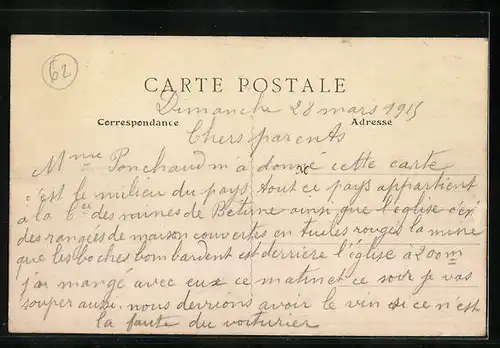 62
CARTE POSTALE
Dimanche 28 mars 1915
Correspondance Adresse
Chers parents
Mme Ponchaud m a donné cette carte
c'est le milieu du pays tout ce pays appartient
à la Cie des mines de Betune ainsi que l'église c'est
des rangées de maison couvertes en tuiles rouges la mine
que les boches bombardent est derrière l'église à 200m
j'ai mangé avec eux ce matin et ce soir je vas
souper aussi. nous devrions avoir le vin si ce n'est
la faute du voiturier